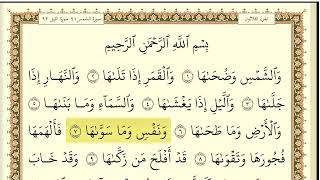 الجزء الثلاثون سورة الشمس ٩١ سورة الليل ٩٢
بِسْمِ اللَّهِ الرَّحْمَٰنِ الرَّحِيمِ
وَالشَّمْسِ وَضُحَىٰهَا ١ وَالْقَمَرِ إِذَا تَلَىٰهَا ٢ وَالنَّهَارِ إِذَا
جَلَّىٰهَا ٣ وَاللَّيْلِ إِذَا يَغْشَىٰهَا ٤ وَالسَّمَاءِ وَمَا بَنَىٰهَا ٥
وَالْأَرْضِ وَمَا طَحَىٰهَا ٦ وَنَفْسٍ وَمَا سَوَّىٰهَا ٧ فَأَلْهَمَهَا
فُجُورَهَا وَتَقْوَىٰهَا ٨ قَدْ أَفْلَحَ مَن زَكَّىٰهَا ٩ وَقَدْ خَابَ